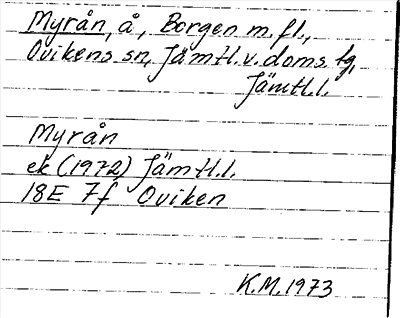 Myrån, å, Borgen m.fl.,
Ovikens sn, Jämtl.v.doms.tg,
Jämtl.l.
Myrån
ek (1972) Jämtl.l.
18E 7f Oviken
K.M.1973